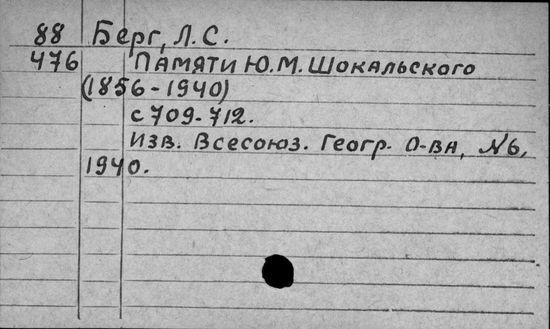 88 Берг, Л.С.
476 Памяти Ю.М. Шокальского
(1856-1940)
с 709-712.
Изв. Всесоюз. Геогр. О-ва, №6,
1940.